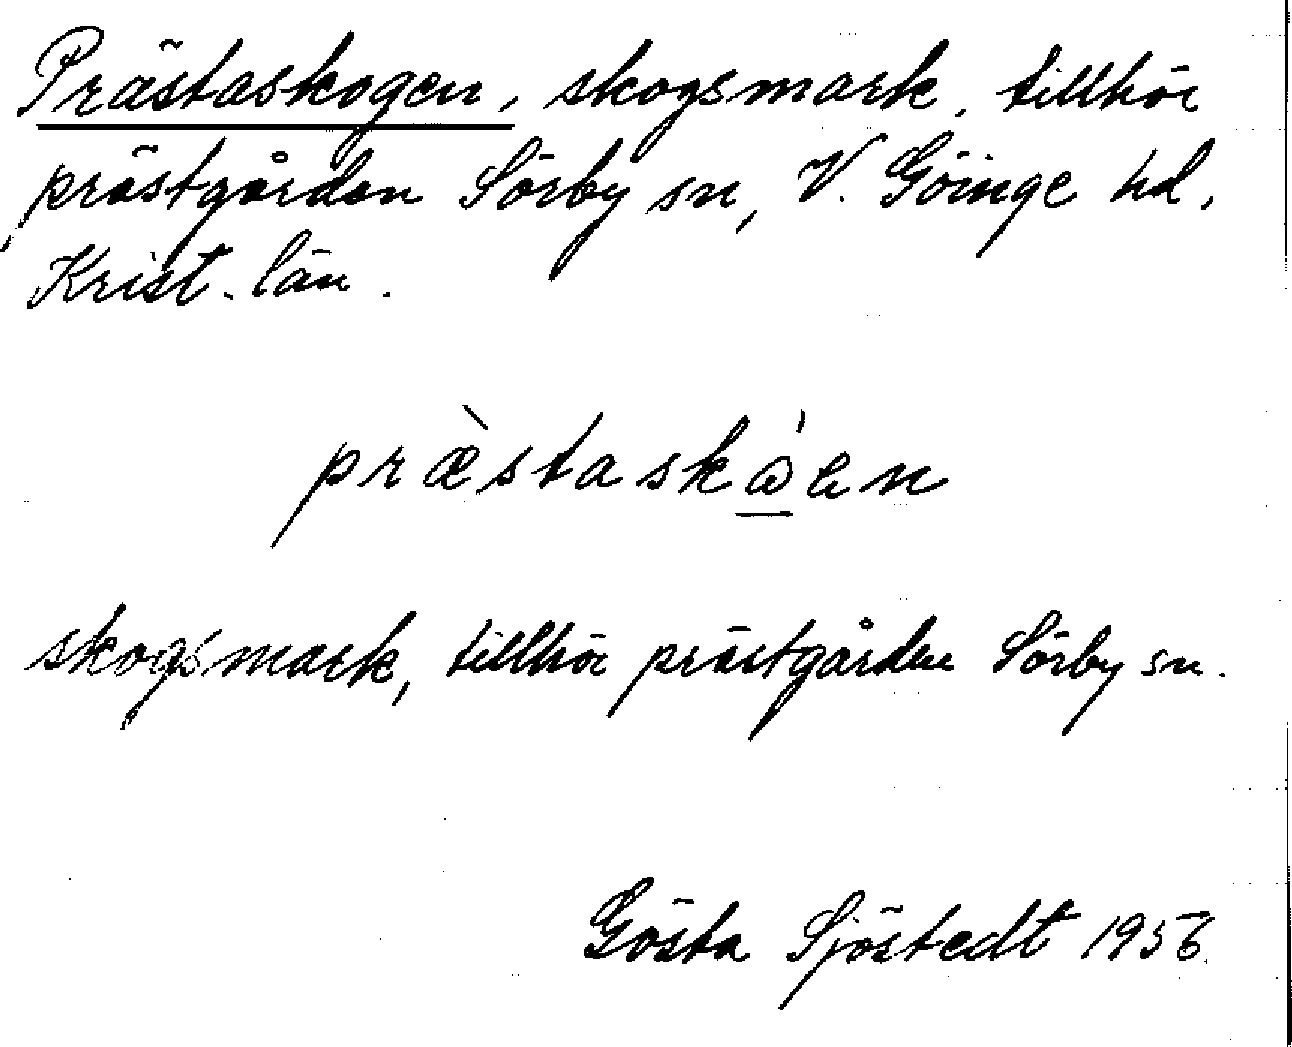 Prästaskogen, skogsmark, tillhör
prästgården Sörby sn, V. Göinge hd,
Krist. län.
præ̀staskɷ́en
skogsmark, tillhör prästgården Sörby sn.
Gösta Sjöstedt 1956.